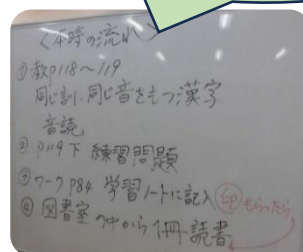 〈本時の流れ〉
①教P118〜119
同じ訓・同じ音をもつ漢字
音読
②P119下 練習問題
③ワークP84 学習ノートに記入 印もらったら
④図書室の中から1冊読書